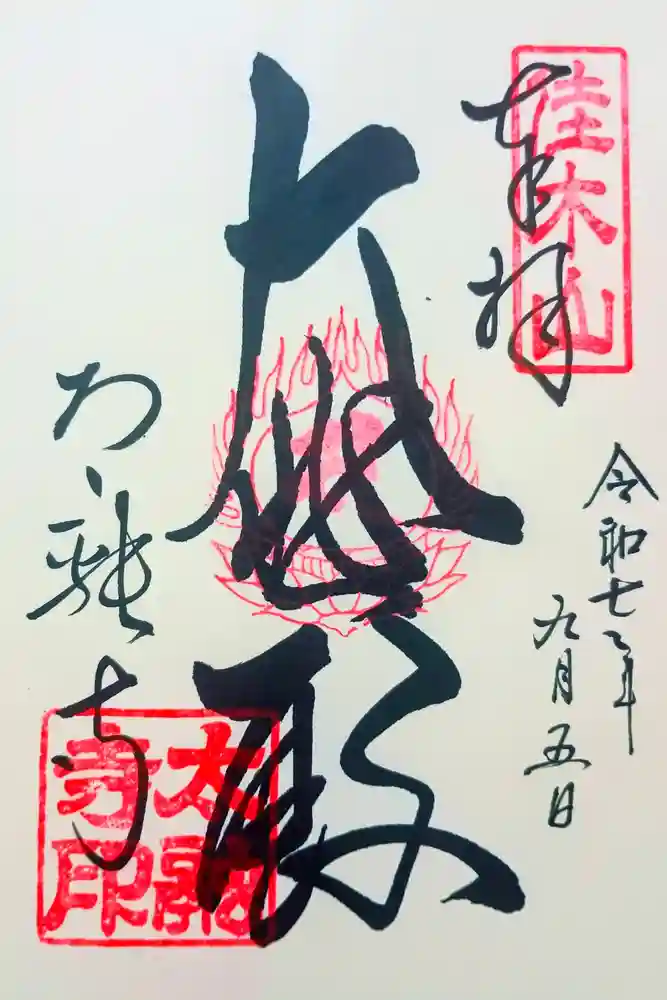 奉拝
佳木山
令和七年
九月五日
大悲殿
太融寺
太融
寺印